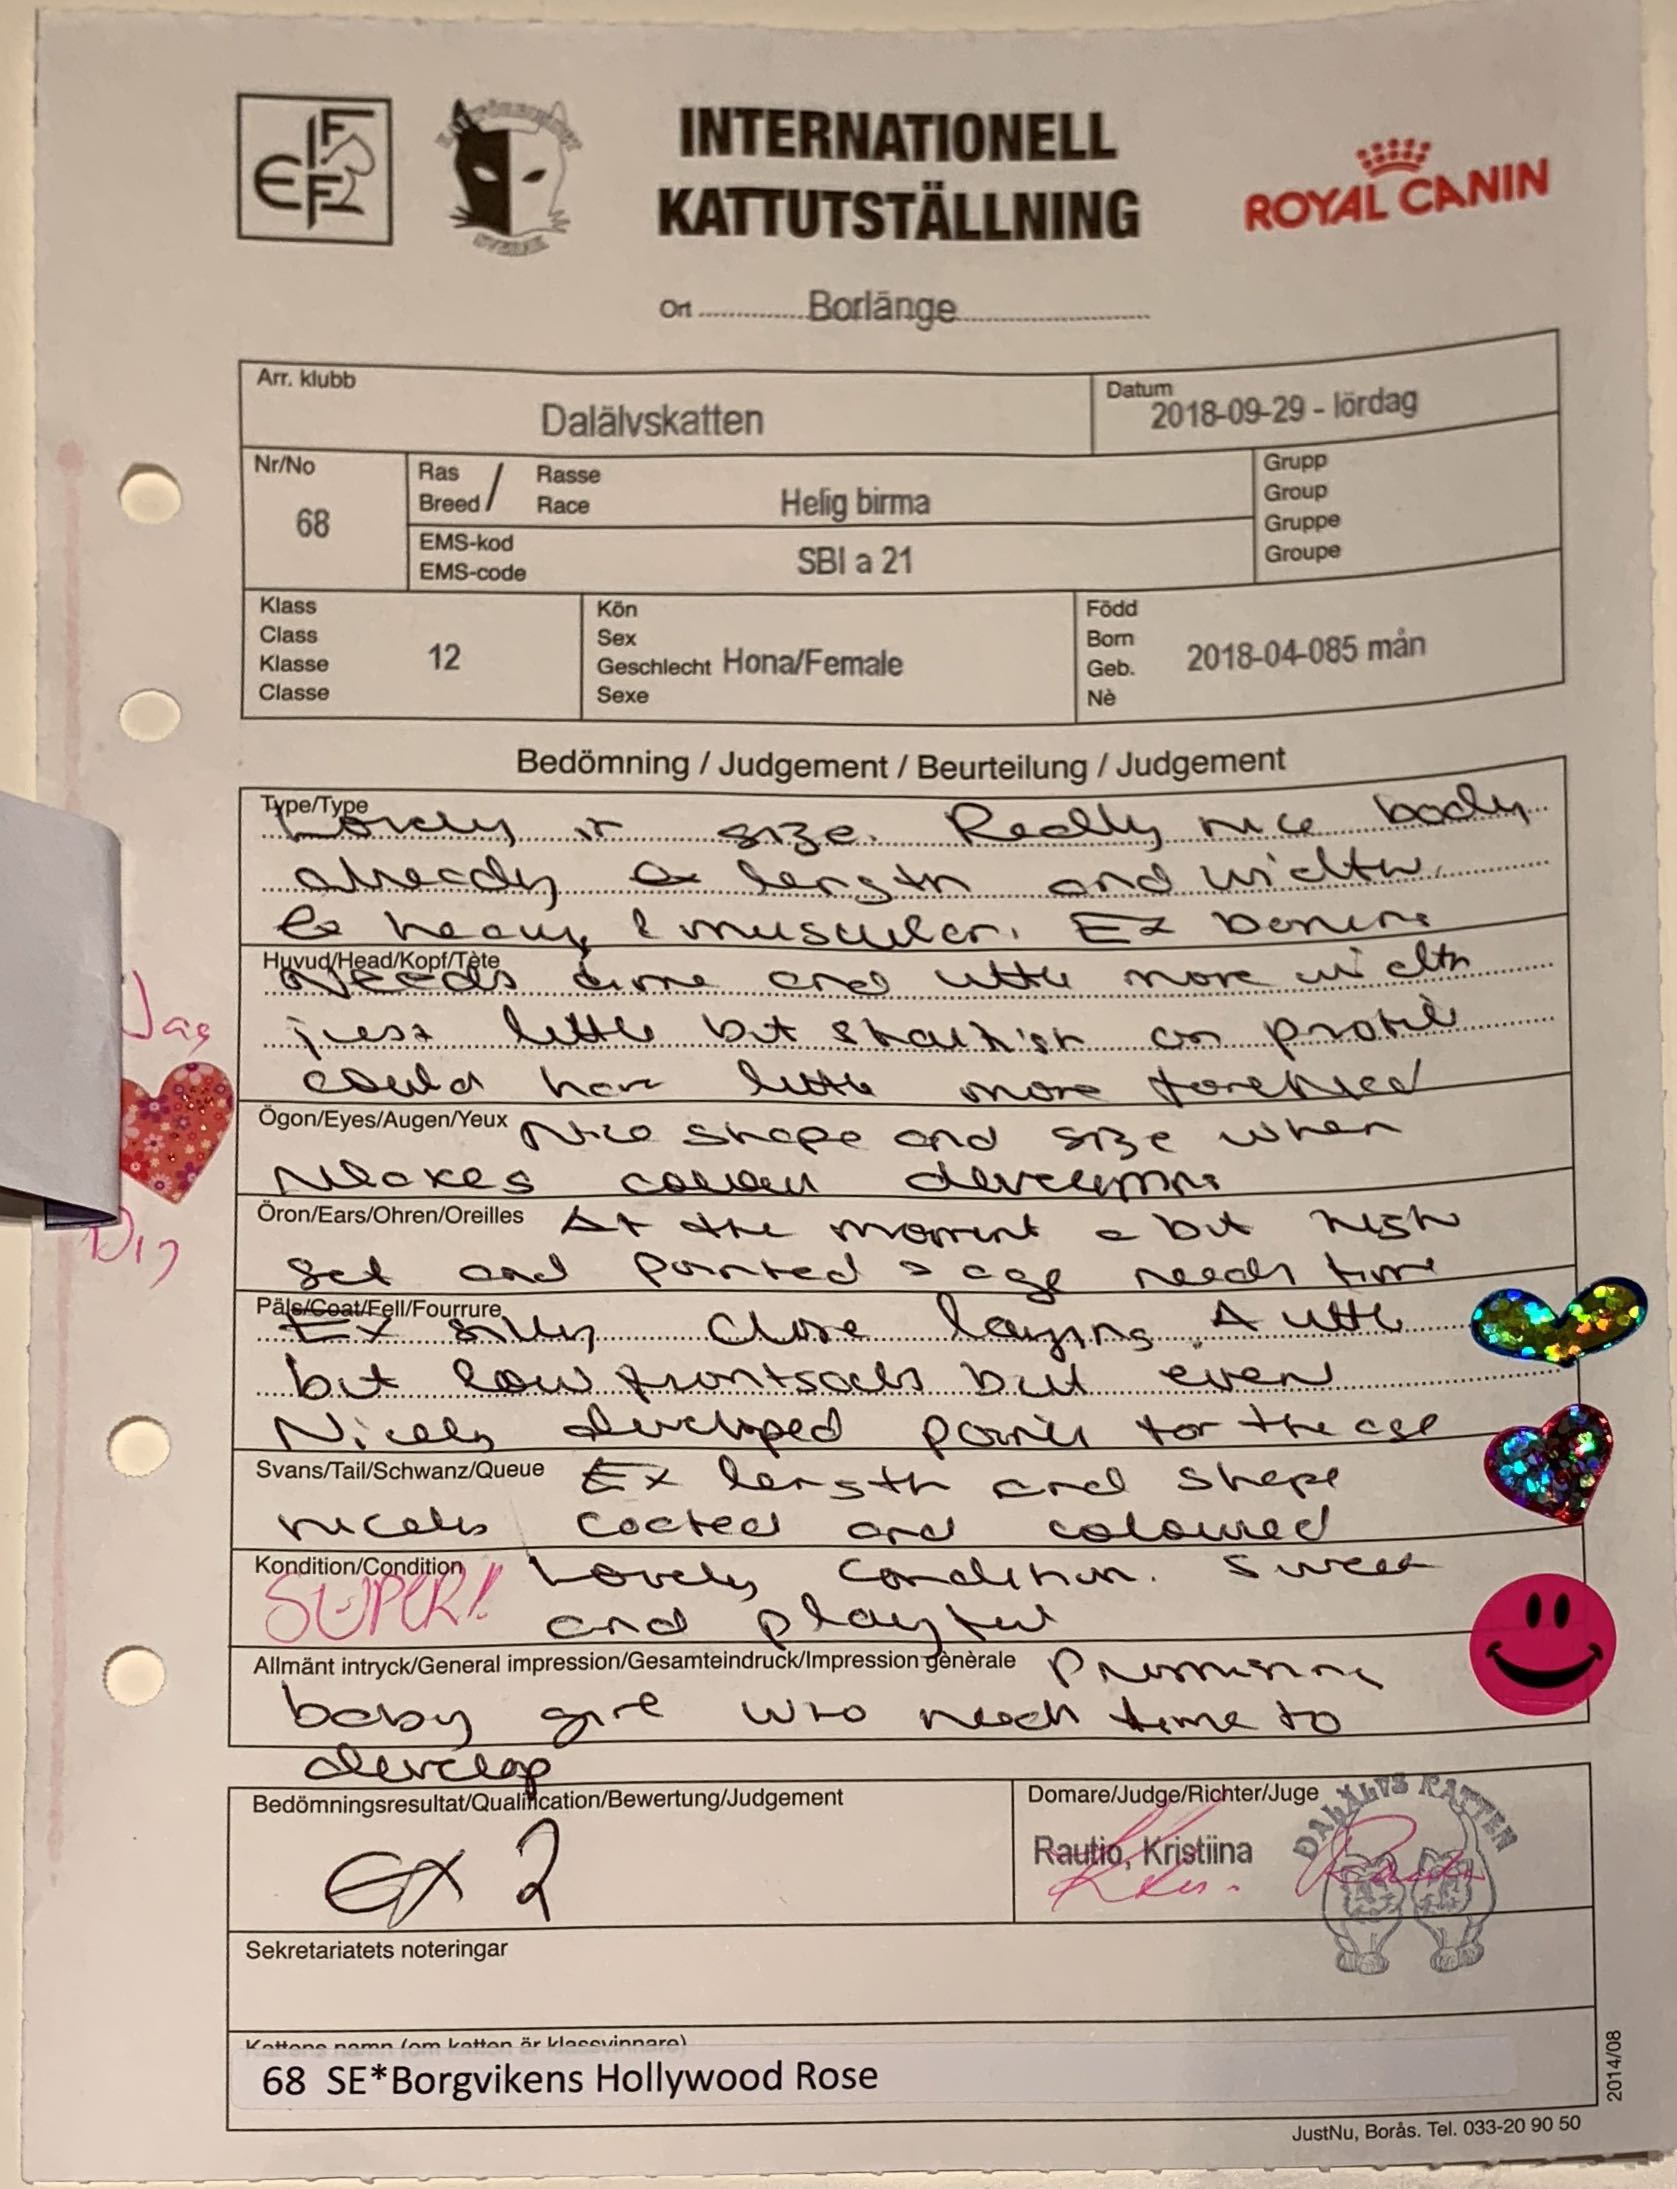 FIFe
SVERAK
INTERNATIONELL
KATTUTSTÄLLNING
ROYAL CANIN
Ort Borlänge
Arr. klubb
Dalälvskatten
Datum
2018-09-29 - lördag
Nr/No
68
Ras
Breed /
Rasse
Race
Helig birma
EMS-kod
EMS-code
SBI a 21
Grupp
Group
Gruppe
Groupe
Klass
Class
Klasse
Classe
12
Kön
Sex
Geschlecht Hona/Female
Sexe
Född
Born
Geb.
Nè
2018-04-085 mån
Bedömning / Judgement / Beurteilung / Judgement
Type/Type
Lovely in size. Really nice body
already Ex length and width.
Ex heavy & muscular. Ex boning
Huvud/Head/Kopf/Tète
Needs time and little more width
just little bit straightish on profile
could have little more forehead
Ögon/Eyes/Augen/Yeux Nice shape and size when
relaxes colour developing
Öron/Ears/Ohren/Oreilles At the moment a bit high
set and pointed age needs time
Päls/Coat/Fell/Fourrure
Ex silky close laying. A little
bit low frontsocks but even
Nicely developed points for the age
Svans/Tail/Schwanz/Queue Ex length and shape
nicely coated and coloured
Kondition/Condition Lovely condition. Sweet
SUPER! and playful
Allmänt intryck/General impression/Gesamteindruck/Impression gènèrale Promising
baby girl who needs time to
develop
Jag
Dig
Bedömningsresultat/Qualification/Bewertung/Judgement
EX 2
Domare/Judge/Richter/Juge
Rautio, Kristiina
DALÄLVS KATTEN
Sekretariatets noteringar
Kattens namn (om katten är klassvinnare)
68 SE*Borgvikens Hollywood Rose
2014/08
JustNu, Borås. Tel. 033-20 90 50